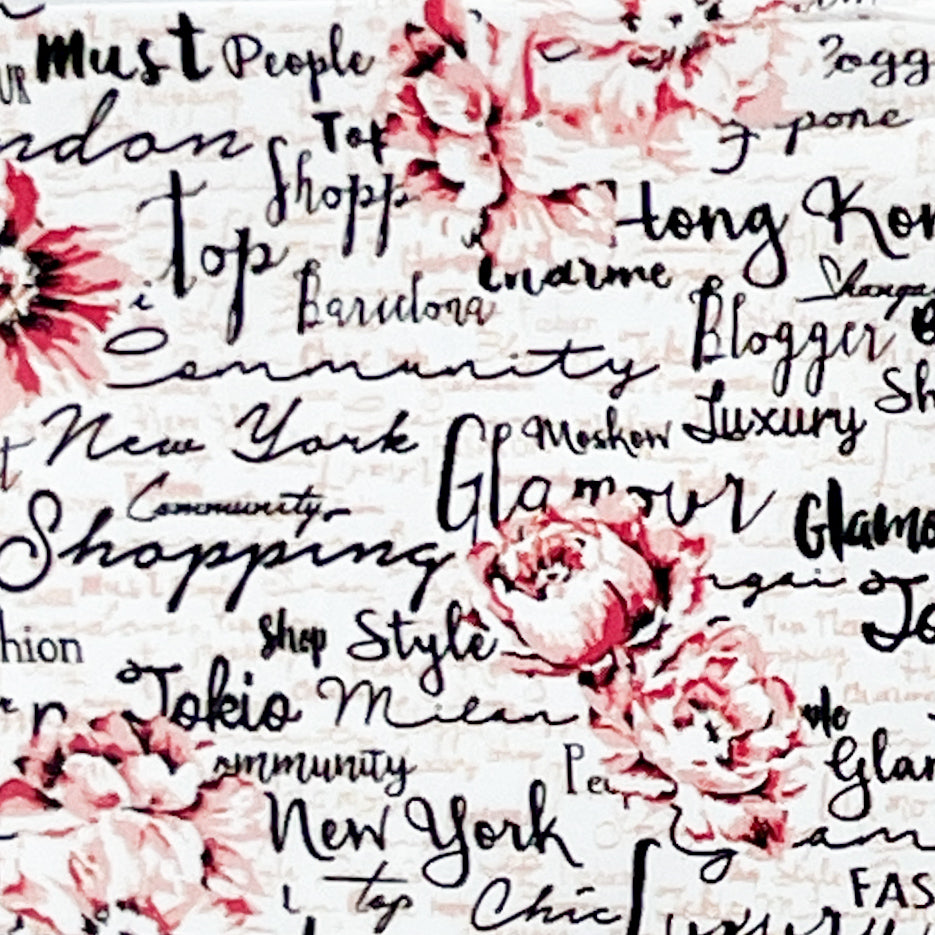 UR Must People
ndon Top
Shopp
pone
Top
Hong Kon
Barcelona
Blogger
ommunity
Sh
New York Moskow Luxury
Glamour
Community
Shopping
Glamo
ngai
To
hion Shop Style
Tokio Milan
Glam
ommunity
New York
top Chic
FAS
uxury